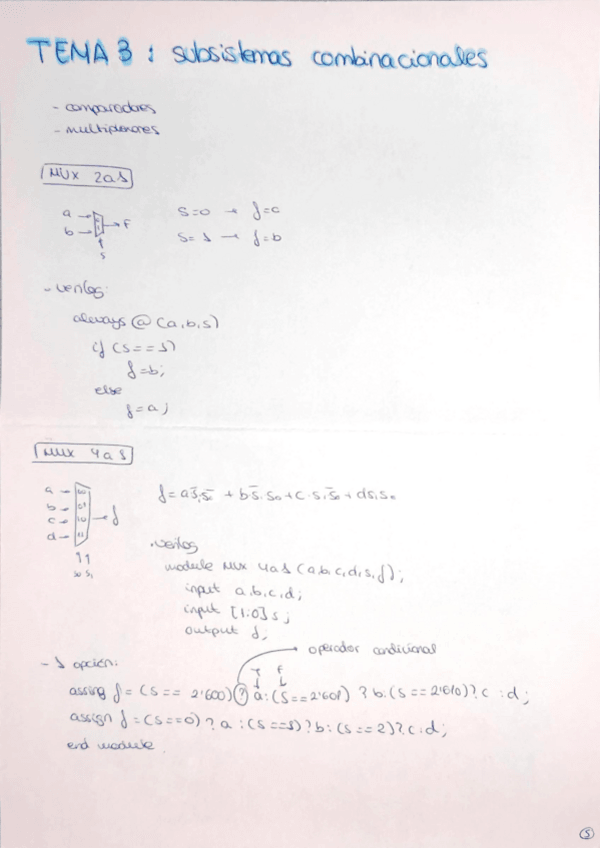 TEMA 3 : subsistemas combinacionales
- comparadores
- multiplexores
MUX 2a1
a
b
F
s
S=0 → f=c
S=1 → f=b
- verilog:
always @ (a,b,s)
if (s==1)
f=b;
else
f=a;
MUX 4a1
a
b
c
d
f
s0 s1
f= a s̄₁s̄₀ + b s̄₁ s₀ + c·s₁ s̄₀ + d s₁s₀
.verilog
module MUX 4a1 (a,b,c,d,s,f);
input a,b,c,d;
input [1:0] s;
output f;
operador condicional
- 1 opción:
T F
assing f= (s== 2'b00) ? a: (s==2'b01) ? b: (s==2'b10)? c :d;
assign f= (s==0) ? a : (s==1)? b: (s==2)? c:d;
end module
5